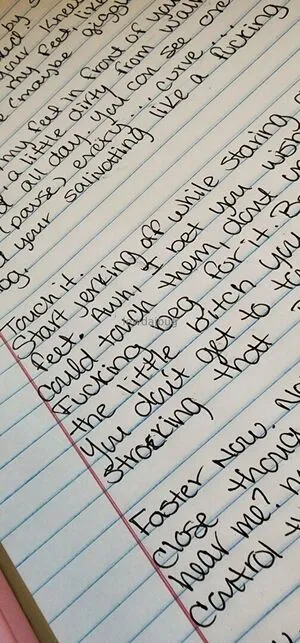 your knees
my feet, like
(maybe giggle
my feet in front of you
a little dirty from walk
all day. you can see
(pause) every... curve
your salivating like a fucking
Touch it.
Start jerking off while staring
feet. Aww, I bet you wish
could touch them, dont
Fucking beg for it. B
the little bitch you
You dont get to to
stroking that
Faster now. N
close though
hear me?
Control